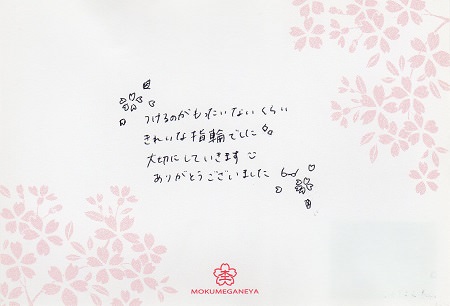 つけるのがもったいないくらい
きれいな指輪でした
大切にしていきます
ありがとうございました
MOKUMEGANEYA